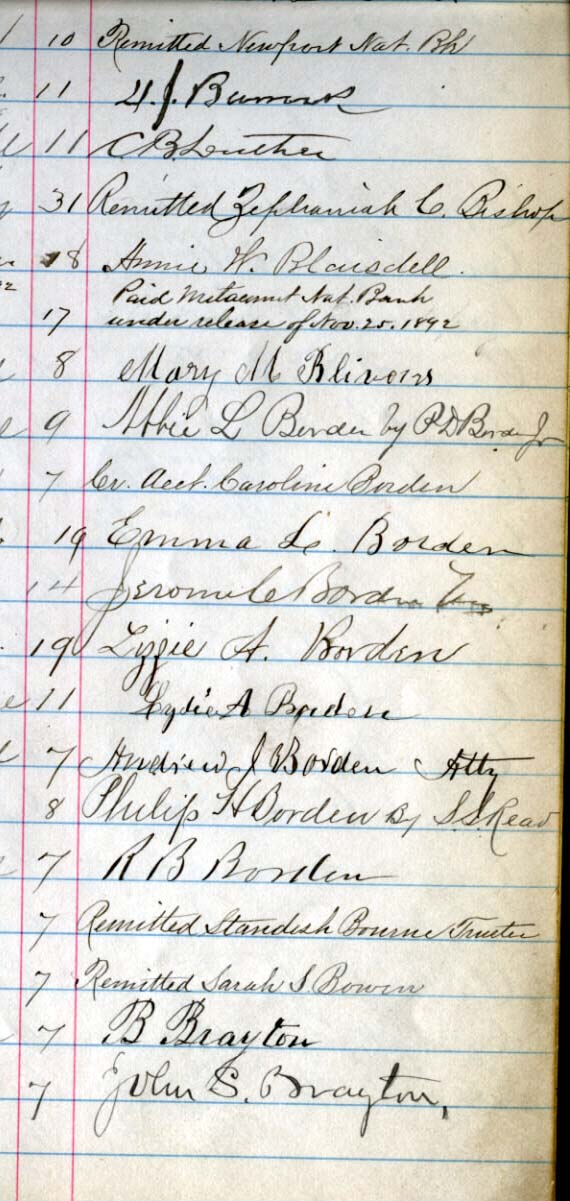 10 Remitted Newport Nat. Bk
11
11 C B Luther
31 Remitted Zephaniah C. Bishop
18 Annie W. Blaisdell.
Paid Metacomet Nat. Bank
17 under release of Nov. 25. 1892
8 Mary M Blivens
9 Abbie L Borden by P D Borden Jr
7 Cr. Acct. Caroline Borden
19 Emma L. Borden
14 Jerome C Borden
19 Lizzie A. Borden
11 Lydia A Borden
7 Andrew J Borden Atty
8 Philip H Borden By S. S. Read
7 R B Borden
7 Remitted Standish Bourne Trustee
7 Remitted Sarah S. Bowen
7 B Brayton
7 John S. Brayton,